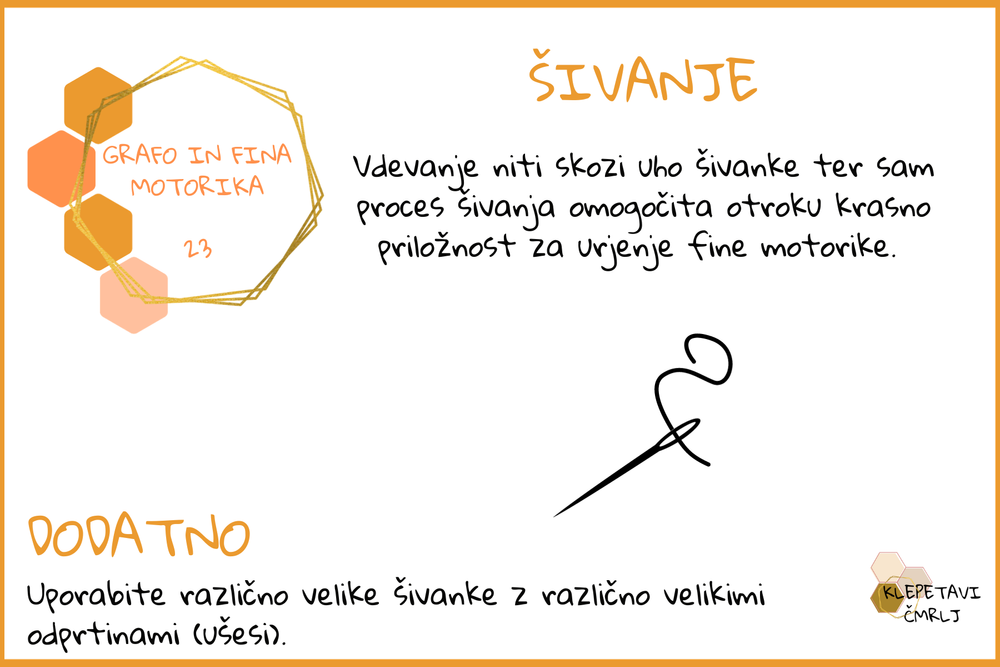 GRAFO IN FINA
MOTORIKA
23
ŠIVANJE
Vdevanje niti skozi uho šivanke ter sam
proces šivanja omogočita otroku krasno
priložnost za urjenje fine motorike.
DODATNO
Uporabite različno velike šivanke z različno velikimi
odprtinami (ušesi).
KLEPETAVI
ČMRLJ